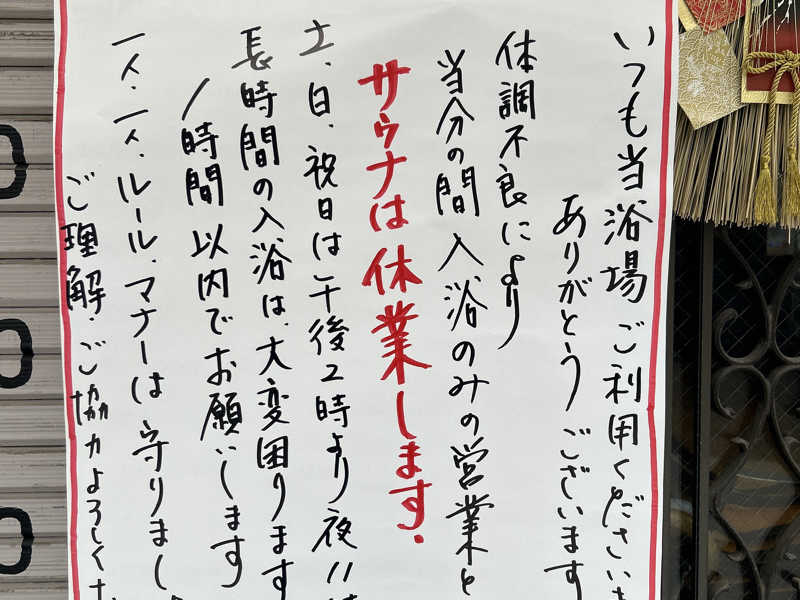 いつも当浴場ご利用くださいま
ありがとうございます
体調不良により
当分の間 入浴のみの営業と
サウナは休業します.
土、日、祝日は午後2時より夜11時
長時間の入浴は、大変困ります
1時間以内でお願いします
一人.一人.ルール.マナーは守りまし
ご理解.ご協力よろしくお